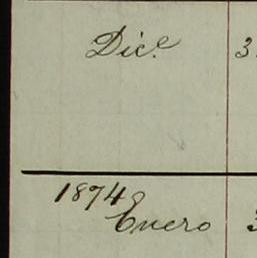 Dic.e 3
1874
Enero 3